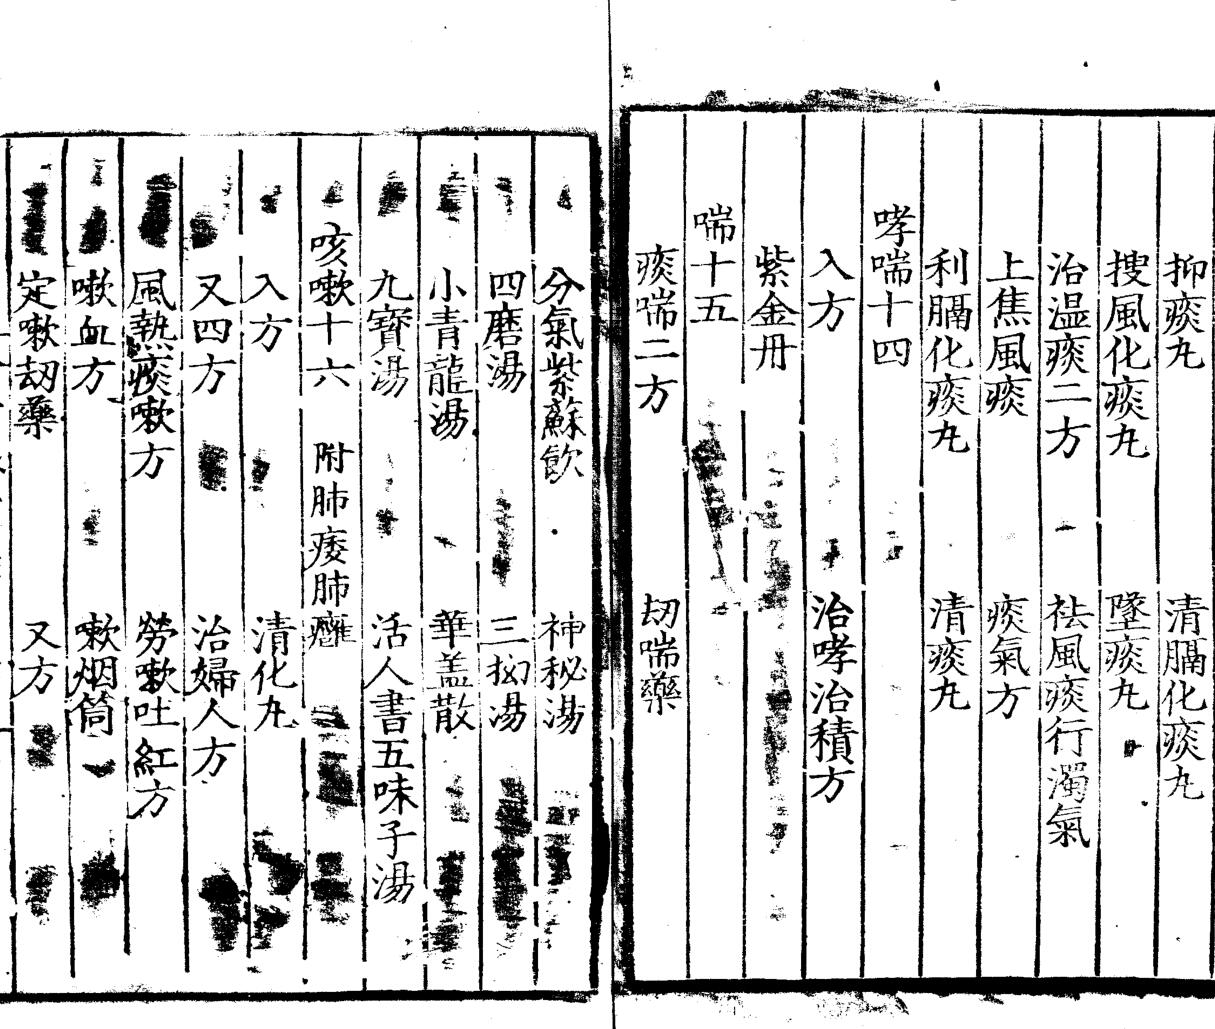 抑痰丸 清膈化痰丸
搜風化痰丸 墜痰丸
治温痰二方 祛風痰行濁氣
上焦風痰 痰氣方
利膈化痰丸 清痰丸
哮喘十四
入方 治哮治積方
紫金丹
喘十五
痰喘二方 劫喘藥
分氣紫蘇飲 神秘湯
四磨湯 三拗湯
小青龍湯 華盖散
九寶湯 活人書五味子湯
咳嗽十六 附肺痿肺癰
入方 清化丸
又四方 治婦人方
風熱痰嗽方 勞嗽吐紅方
嗽血方 嗽烟筒
定嗽劫藥 又方